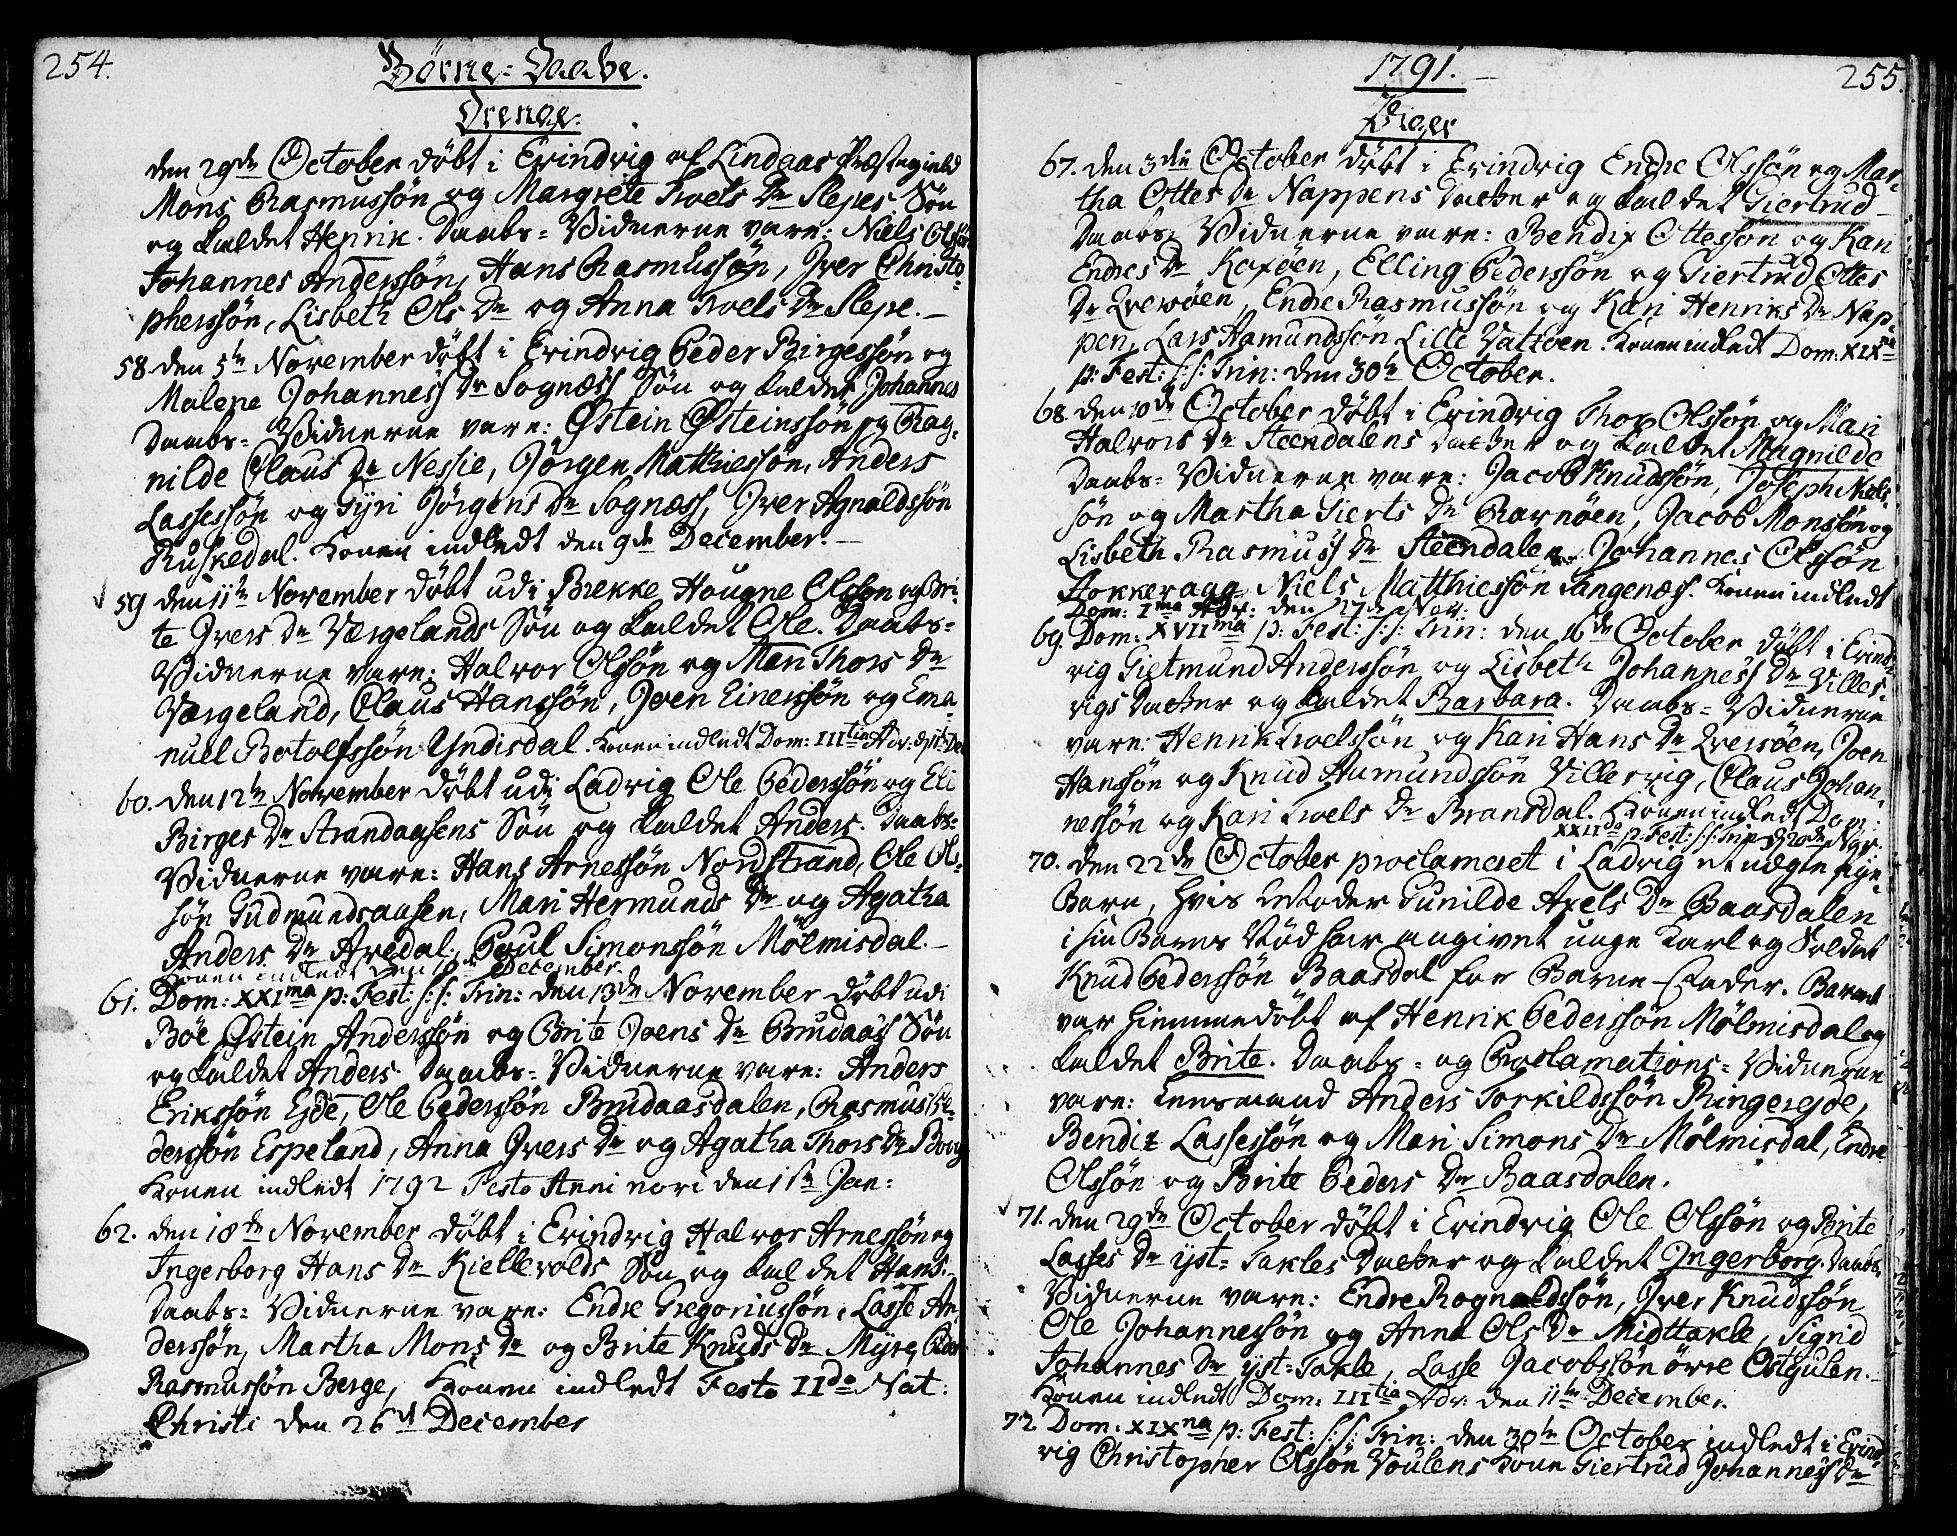 254.
Börne-Daabe.
Drenge.
den 29de October döbt i Evindvig af Lindaas Præstegield
Mons Rasmussön og Margrete Troels Dr Slepes Sön
og kaldet Henrik. Daabs-Vidnerne vare: Niels Olssön
Johannes Anderssön, Hans Rasmussön, Iver Christo-
pherssön, Lisbeth Ols Dr og Anna Troels Dr Slepe.
58 den 5te November döbt i Evindvig Peder Birgessön og
Malene Johanness Dr Sognæss Sön og kaldet Johannes
Daabs-Vidnerne vare: Østein Østeinssön og Rag-
nilde Claus Dr Nessie, Jörgen Matthiessön, Anders
Lassessön og Gyri Jörgens Dr Sognæss, Iver Agnaldssön
Ruskedal. Konen indledt den 9de December.
59 den 11te November döbt udi Brekke Hougne Olsson og Bri-
te Ivers Dr Værgelands Sön og kaldet Ole. Daabs-
Vidnerne vare: Halvor Olssön og Mari Thors Dr
Værgeland, Claus Hanssön, Joen Einerssön og Ema-
nuel Botolfssön Yndisdal. Konen indledt Dom: IIItia Adv: d. 11te De
60. den 12te November döbt udi Ladvig Ole Pederssön og Eli
Birges Dr Strandaasens Sön og kaldet Anders. Daabs-
Vidnerne vare: Hans Arnessön Nordstrand, Ole Ols-
sön Gudmundsaasen, Mari Hermunds Dr og Agatha
Anders Dr Avedal, Poul Simonssön Mölmisdal.
Konen indledt den December.
61. Dom: XXIma p: Fest: s:s: Trin: den 13de November döbt udi
Böe Østein Anderssön og Brite Joens Dr Brudaas Sön
og kaldet Anders. Daabs-Vidnerne vare: Anders
Erikssön Eide, Ole Pederssön Brudaasdalen, Rasmus Pe-
derssön Espeland, Anna Ivers Dr og Agatha Thors Dr
Konen indledt 1792 Festo Anni novi den 1ste Jan:
62. den 18de November döbt i Evindvig Halvor Arnessön og
Ingerborg Hans Dr Kiellevolds Sön og kaldet Hans.
Daabs-Vidnerne vare: Endre Gregoriussön, Lasse An-
derssön, Martha Mons Dr og Brite Knuds Dr Myre, Peder
Rasmussön Berge, Konen indledt Festo IIdo Nat:
Christi den 26de December
1791.
255.
Piger
67. den 3die October döbt i Evindvig Endre Olssön og Mar-
tha Ottes Dr Nappens Datter og kaldet Giertrud
Daabs-Vidnerne vare: Bendix Ottesson og Kari
Endres Dr Koxöen, Elling Pederssön og Giertrud Ottes
Dr Qversöen, Endre Rasmussön og Kari Henriks Dr Nap-
pen, Lars Hamundssön Lille Vattöen. Konen indledt Dom: XIXna
p: Fest: s:s: Trin: den 30te October.
68. den 10de October döbt i Evindvig Thor Olssön og Mari
Halvors Dr Steendalens Datter og kaldet Magnilde
Daabs-Vidnerne vare: Jacob Knudssön, Joseph Niels-
sön og Martha Gierts Dr Ravnöen, Jacob Monssön og
Lisbeth Rasmuss Dr Steendalen, Johannes Olssön
Stokkevaag, Niels Matthiessön Langenæss. Konen indledt
Dom: Ima Adv: den 27de Nov:
69. Dom: XVIIma p: Fest: s:s: Trin: den 16de October döbt i Evind-
vig Gietmund Anderssön og Lisbeth Johanness Dr Villes-
vigs Datter og kaldet Barbara. Daabs-Vidnerne
vare: Henrik Troelssön og Kari Hans Dr Qversöen, Joen
Hanssön og Knud Amundssön Villesvig, Claus Johan-
nessön og Kari Troels Dr Bransdal. Konen indledt Dom:
XXIIdo p: Fest: s:s: Trin d. 20de Nov.
70. den 22de October proclameret i Ladvig et uægte pige-
Barn, hvis Moder Gunilde Axels Dr Baasdalen
i sin Barns Nöd har angivet unge Karl og Soldat
Knud Pederssön Baasdal for Barne-Fader. Barnet
var hiemmedöbt af Henrik Pederssön Mölmisdal og
kaldet Brite. Daabs- og Proclamations-Vidnerne
vare: Lensmand Anders Torkildssön Ringereide,
Bendix Lassessön og Mari Simons Dr Mölmisdal, Endre
Olssön og Brite Peders Dr Baasdalen.
71. den 29de October döbt i Evindvig Ole Olssön og Brite
Lasses Dr yst-Takles Datter og kaldet Ingerborg. Daabs-
Vidnerne vare: Endre Rognaldssön, Iver Knudssön
Ole Johannessön og Anna Ols Dr Midttakle, Sigrid
Johannes Dr yst-Takle, Lasse Jacobssön övre Ostgulen.
Konen indledt Dom: IIItia Adv: den 11te December.
72 Dom: XIXna p: Fest: s:s: Trin: den 30te October indledt i Evind-
vig Christopher Olssön Voulens Kone Giertrud Johanness Dr